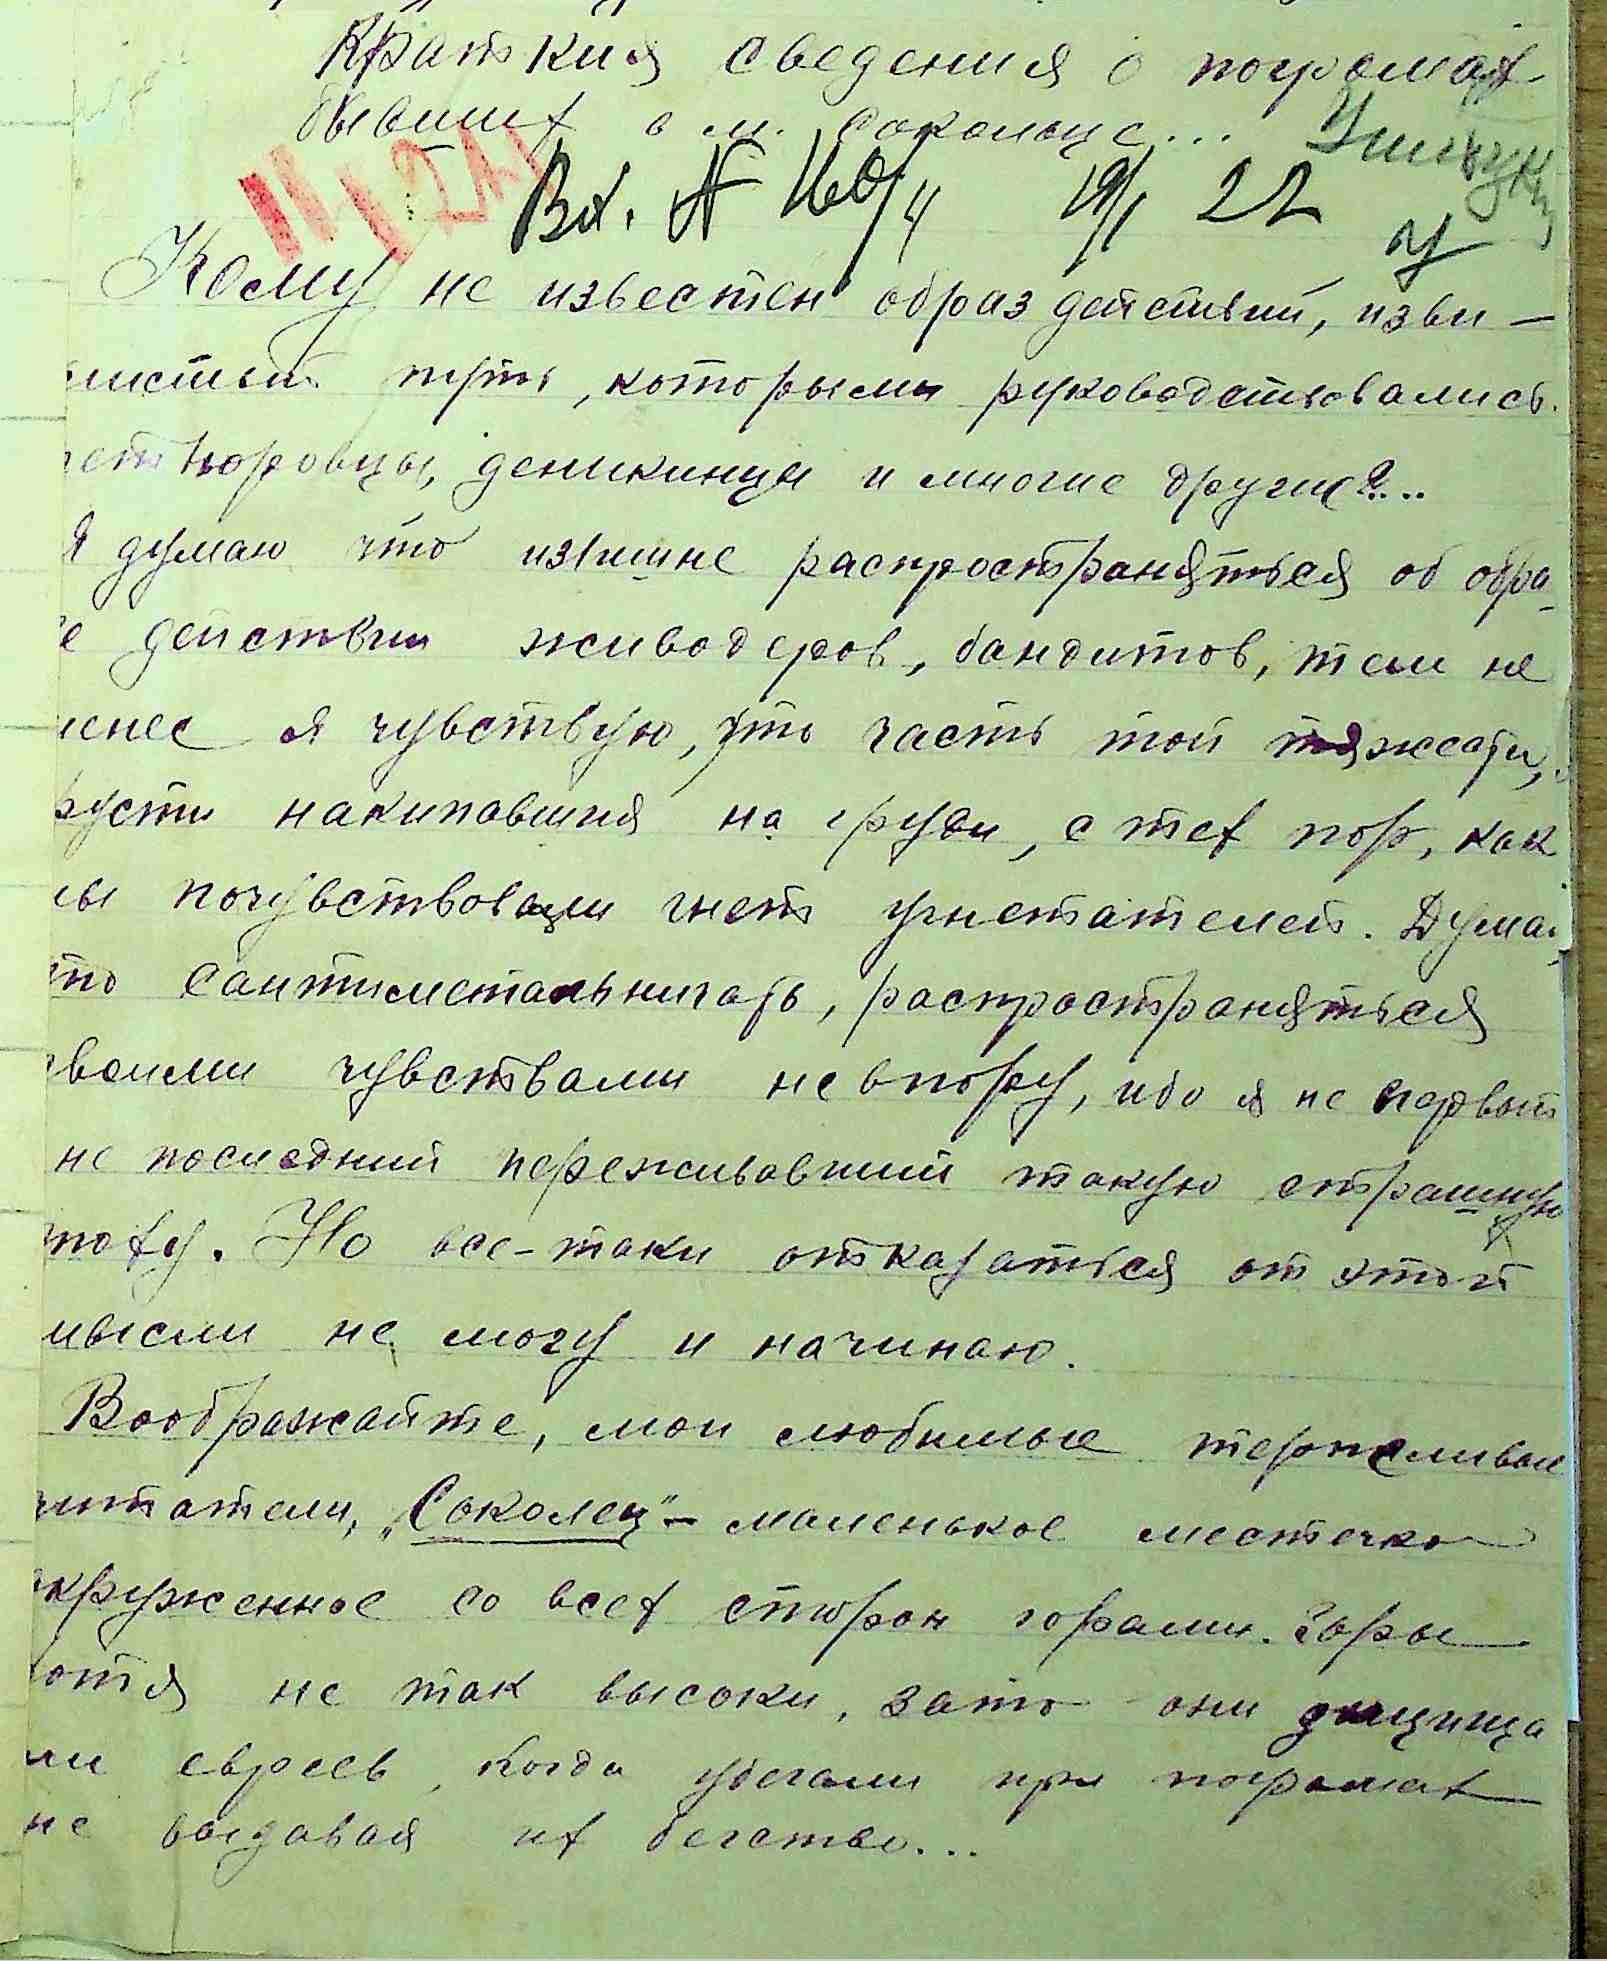 Краткия сведения о погромах
бывших в м. Сокольце...
Вх. № 160/4 19/I 22
Кому не известен образ действий, изви-
листый путь, которыми руководствовались
петлюровцы, деникинцы и многие другие?...
Я думаю что излишне распространяться об обра-
зе действии живодеров, бандитов, тем не
менее я чувствую, что часть той тяжести,
грусти накипавшия на груди, с тех пор, как
мы почувствовали гнет угнетателей. Думаю
что сантиметальничать, распространяться
своими чувствами не впору, ибо я не первый
не последний переживавший такую страшную
эпоху. Но все-таки отказаться от этой
мысли не могу и начинаю.
Воображайте, мои любимые терпеливые
читатели, „Соколец" - маленькое местечко
окруженное со всех сторон горами. Горы
хотя не так высоки, зато они защища
ли евреев, когда убегали при погромах
не выдавая их бегство...